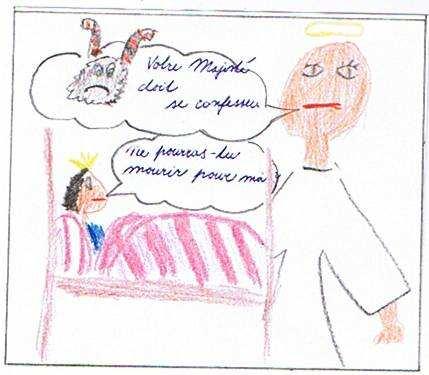 Votre Majesté
doit
se confesser
Ne pourras-tu
mourir pour moi